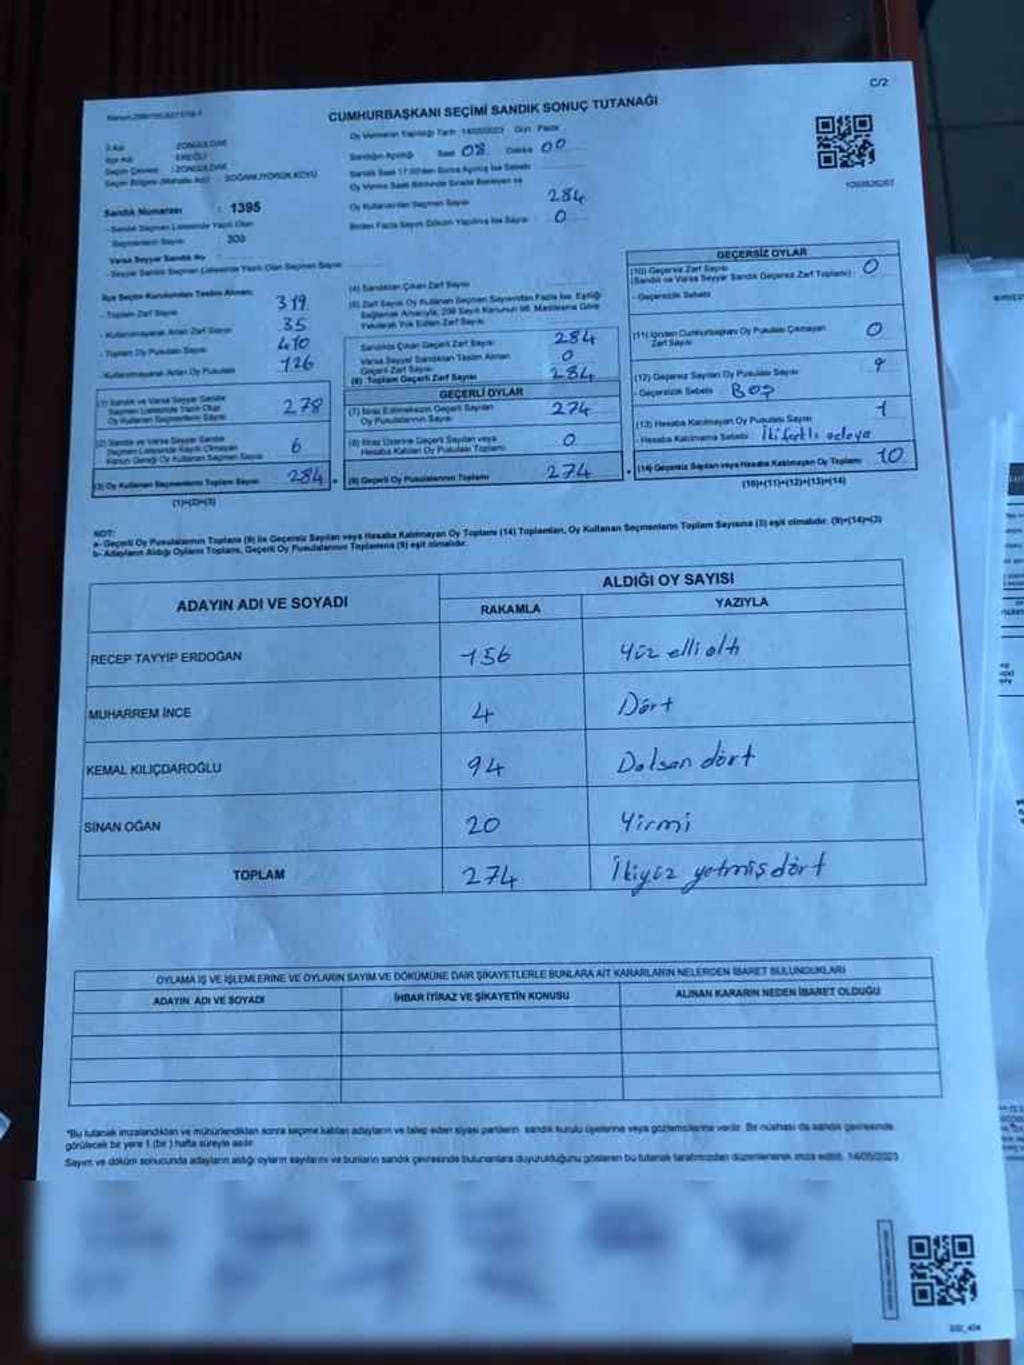 C/2
CUMHURBAŞKANI SEÇİMİ SANDIK SONUÇ TUTANAĞI
Oy Vermenin Yapıldığı Tarih : 14/05/2023 Gün : Pazar
İli Adı : ZONGULDAK
İlçe Adı : EREĞLİ
Sandığın Açıldığı Saat 08 Dakika 00
Seçim Çevresi : ZONGULDAK
Seçim Bölgesi (Mahalle Adı) : SOĞANLIYÖRÜK KÖYÜ
Oy Verme Saati Bitiminde Sırada Bekleyen ve
Oy Kullandırılan Seçmen Sayısı 284
Birden Fazla Sayım Döküm Yapılmış İse Sayısı 0
Sandık Numarası : 1395
- Sandık Seçmen Listesinde Yazılı Olan
Seçmenlerin Sayısı : 309
Varsa Seyyar Sandık No :
- Seyyar Sandık Seçmen Listesinde Yazılı Olan Seçmen Sayısı
İlçe Seçim Kurulundan Teslim Alınan;
- Toplam Zarf Sayısı 319
- Kullanılmayarak Artan Zarf Sayısı 35
- Toplam Oy Pusulası Sayısı 410
- Kullanılmayarak Artan Oy Pusulası 126
(1) Sandık ve Varsa Seyyar Sandık
Seçmen Listesinde Yazılı Olup
Oy Kullanan Seçmenlerin Sayısı 278
(2) Sandık ve Varsa Seyyar Sandık
Seçmen Listesinde Kaydı Olmayan
Kanun Gereği Oy Kullanan Seçmen Sayısı 6
(3) Oy Kullanan Seçmenlerin Toplam Sayısı 284
(1)+(2)=(3)
(4) Sandıktan Çıkan Zarf Sayısı
(5) Zarf Sayısı Oy Kullanan Seçmen Sayısından Fazla İse, Eşitliği
Sağlamak Amacıyla, 298 Sayılı Kanunun 98. Maddesine Göre
Yakılarak Yok Edilen Zarf Sayısı
Sandıkta Çıkan Geçerli Zarf Sayısı 284
Varsa Seyyar Sandıktan Teslim Alınan
Geçerli Zarf Sayısı 0
(6) Toplam Geçerli Zarf Sayısı 284
GEÇERLİ OYLAR
(7) İtiraz Edilmeksizin Geçerli Sayılan
Oy Pusulalarının Sayısı 274
(8) İtiraz Üzerine Geçerli Sayılan veya
Hesaba Katılan Oy Pusulası Toplamı 0
(9) Geçerli Oy Pusulalarının Toplamı 274
GEÇERSİZ OYLAR
(10) Geçersiz Zarf Sayısı
(Sandık ve Varsa Seyyar Sandık Geçersiz Zarf Toplamı) 0
- Geçersizlik Sebebi
(11) İçinden Cumhurbaşkanı Oy Pusulası Çıkmayan
Zarf Sayısı 0
(12) Geçersiz Sayılan Oy Pusulası Sayısı 9
- Geçersizlik Sebebi : Boş
(13) Hesaba Katılmayan Oy Pusulası Sayısı 1
- Hesaba Katılmama Sebebi : İki farklı adaya
(14) Geçersiz Sayılan veya Hesaba Katılmayan Oy Toplamı 10
(10)+(11)+(12)+(13)=(14)
NOT:
a- Geçerli Oy Pusulalarının Toplamı (9) ile Geçersiz Sayılan veya Hesaba Katılmayan Oy Toplamı (14) Toplamları, Oy Kullanan Seçmenlerin Toplam Sayısına (3) eşit olmalıdır. (9)+(14)=(3)
b- Adayların Aldığı Oyların Toplamı, Geçerli Oy Pusulalarının Toplamına (9) eşit olmalıdır.
ADAYIN ADI VE SOYADI
ALDIĞI OY SAYISI
RAKAMLA YAZIYLA
RECEP TAYYİP ERDOĞAN 156 Yüz elli altı
MUHARREM İNCE 4 Dört
KEMAL KILIÇDAROĞLU 94 Doksan dört
SİNAN OĞAN 20 Yirmi
TOPLAM 274 İkiyüz yetmiş dört
OYLAMA İŞ VE İŞLEMLERİNE VE OYLARIN SAYIM VE DÖKÜMÜNE DAİR ŞİKAYETLERLE BUNLARA AİT KARARLARIN NELERDEN İBARET BULUNDUKLARI
ADAYIN ADI VE SOYADI İHBAR İTİRAZ VE ŞİKAYETİN KONUSU ALINAN KARARIN NEDEN İBARET OLDUĞU
*Bu tutanak imzalandıktan ve mühürlendikten sonra seçime katılan adayların ve talep eden siyasi partilerin sandık kurulu üyelerine veya gözlemcilerine verilir. Bir nüshası da sandık çevresinde
görülecek bir yere 1 (bir) hafta süreyle asılır.
Sayım ve döküm sonucunda adayların aldığı oyların sayılarını ve bunların sandık çevresinde bulunanlara duyurulduğunu gösteren bu tutanak tarafımızdan düzenlenerek imza edildi. 14/05/2023